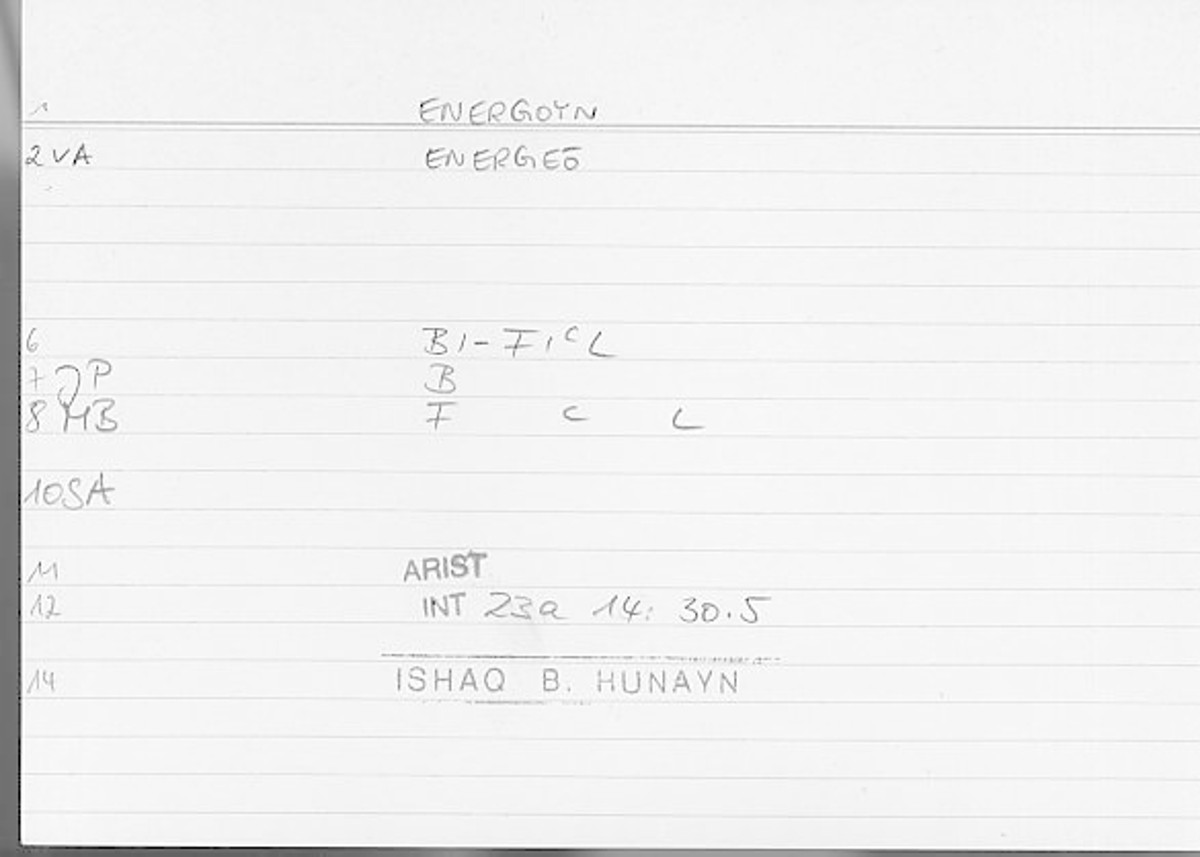 1 ENERGOYN
2 VA ENERGEŌ
6 BI-F,CL
7 JP B
8 MB F C L
10SA
11 ARIST
12 INT 23a 14: 30.5
14 ISHAQ B. HUNAYN